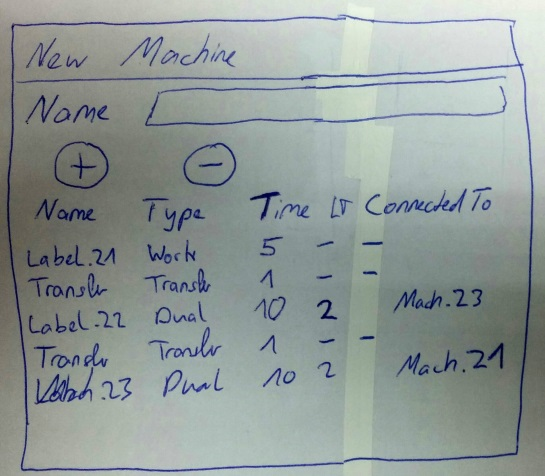 New Machine
Name
+ -
Name Type Time LT Connected To
Label.21 Work 5 - -
Transfer Transfer 1 - -
Label.22 Dual 10 2 Mach.23
Transfer Transfer 1 - -
.23 Dual 10 2 Mach.21